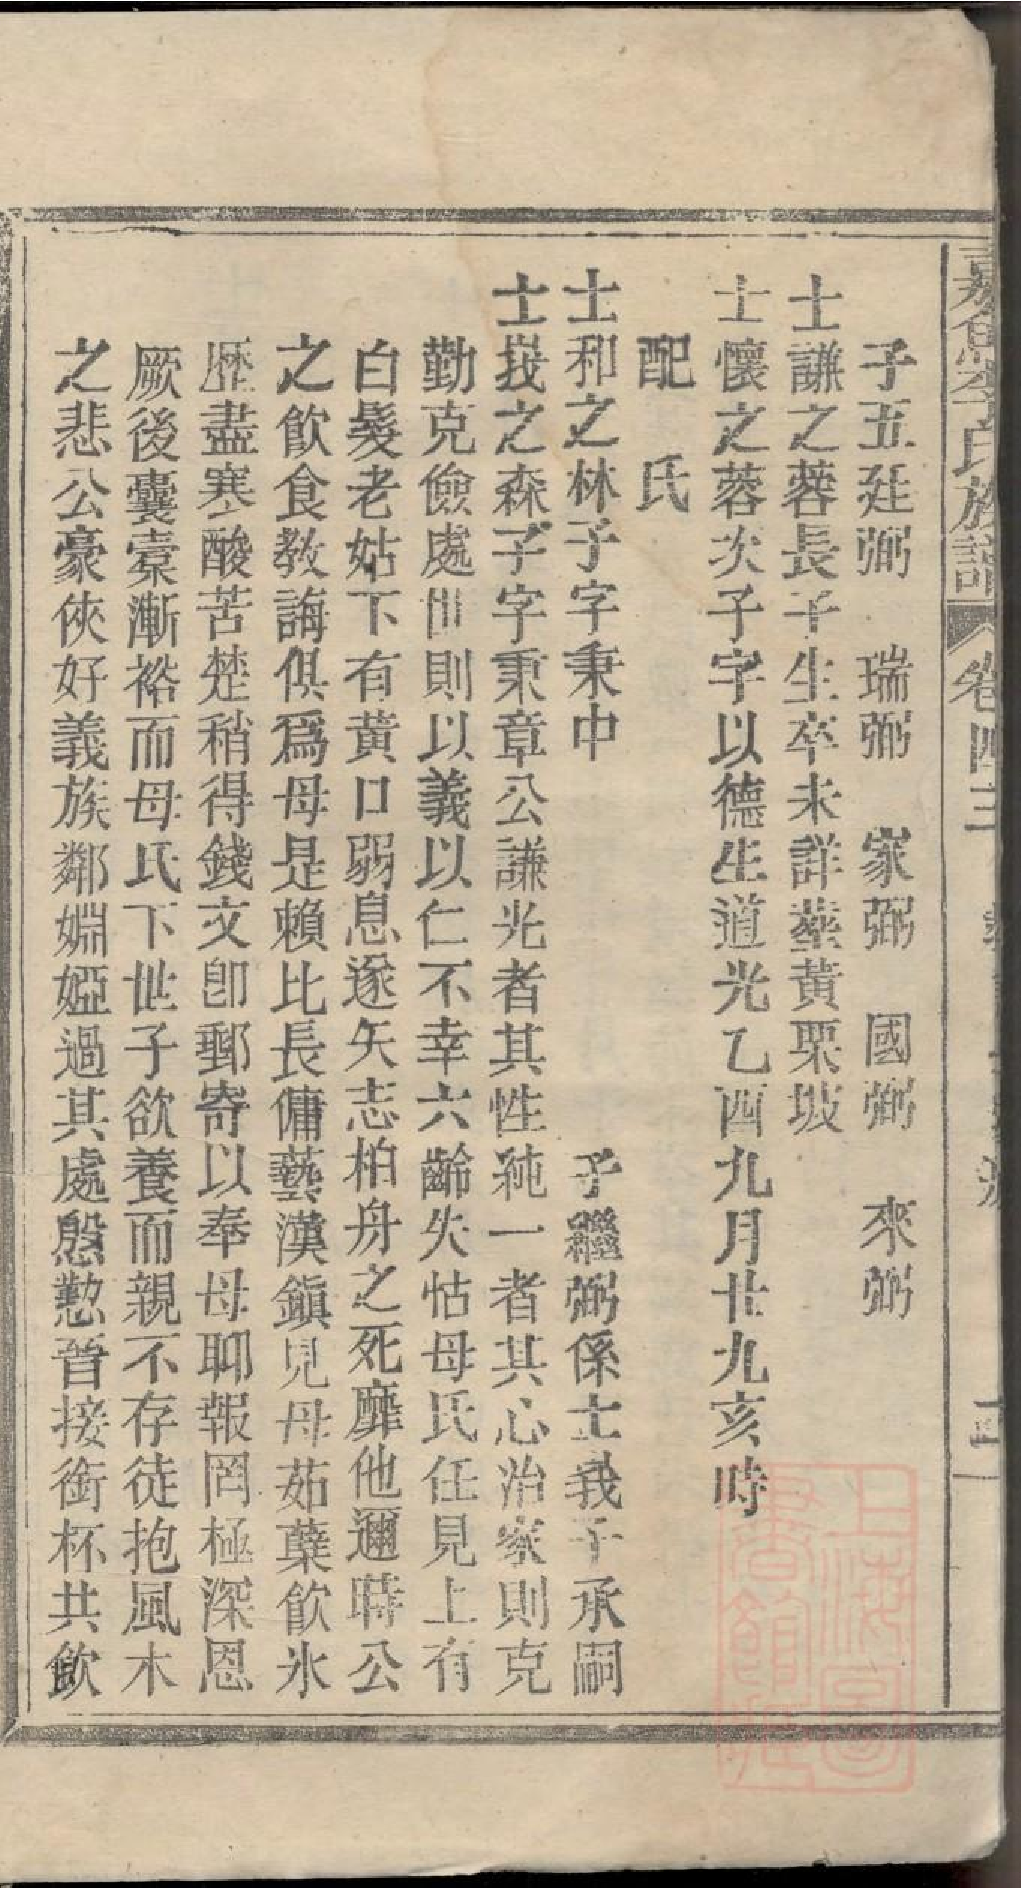 嘉魚李氏族譜 卷四 二
子五廷弼 瑞弼 家弼 國弼 來弼
士謙之蓉長子生卒未詳塟黃栗坡
士懷之蓉次子字以德生道光乙酉九月廿九亥時
配 氏
士和之林子字秉中 子繼弼係士義子承嗣
士義之森子字秉章公謙光者其性純一者其心治家則克
勤克儉處世則以義以仁不幸六齡失怙母氏任見上有
白髮老姑下有黃口弱息遂矢志柏舟之死靡他邇時公
之飲食教誨俱爲母是賴比長傭藝漢鎭見母茹蘗飲氷
歷盡寒酸苦楚稍得錢文卽郵寄以奉母聊報罔極深恩
厥後囊橐漸裕而母氏下世子欲養而親不存徒抱風木
之悲公豪俠好義族鄰婣婭過其處慇懃晉接銜杯共飲
上海圖書館藏